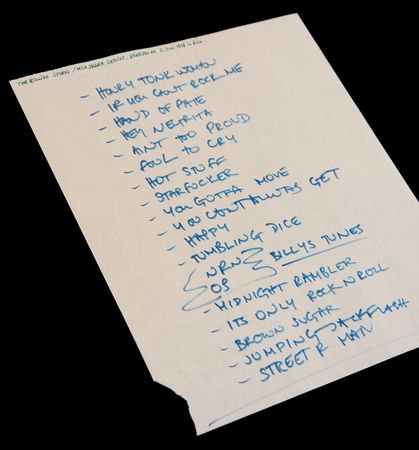 THE ROLLING STONES / MICK JAGGER SETLIST,
- HONKY TONK WOMAN
- IF YOU CANT ROCK ME
- HAND OF FATE
- HEY NEGRITA
- AINT TOO PROUD
- FOOL TO CRY
- HOT STUFF
- STARFUCKER
- YOU GOTTA MOVE
- YOU CANT ALWAYS GET
- HAPPY
- TUMBLING DICE
- NRN
OB BILLYS TUNES
- MIDNIGHT RAMBLER
- ITS ONLY ROCK N ROLL
- BROWN SUGAR
- JUMPING JACKFLASH
- STREET F MAN